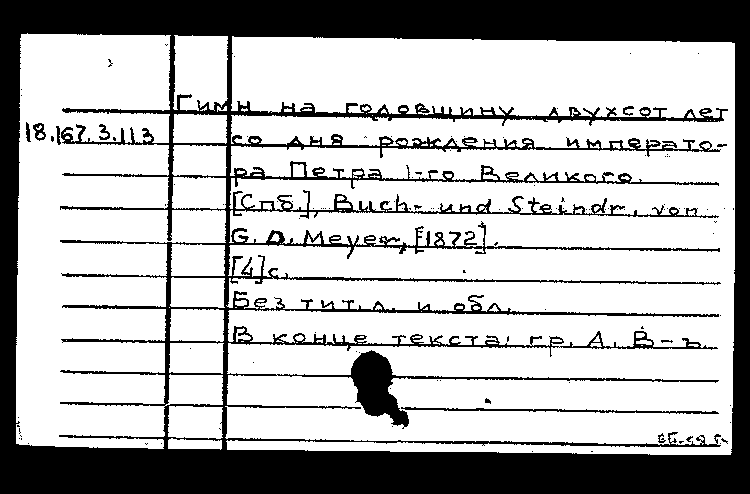 Гимн на годовщину двухсот лет
18.167.3.113 со дня рождения императо-
ра Петра I-го Великого.
[Спб.], Buch- und Steindr. von
G. D. Meyer, [1872].
[4]с.
Без тит. л. и обл.
В конце текста: гр. А. В-ъ.